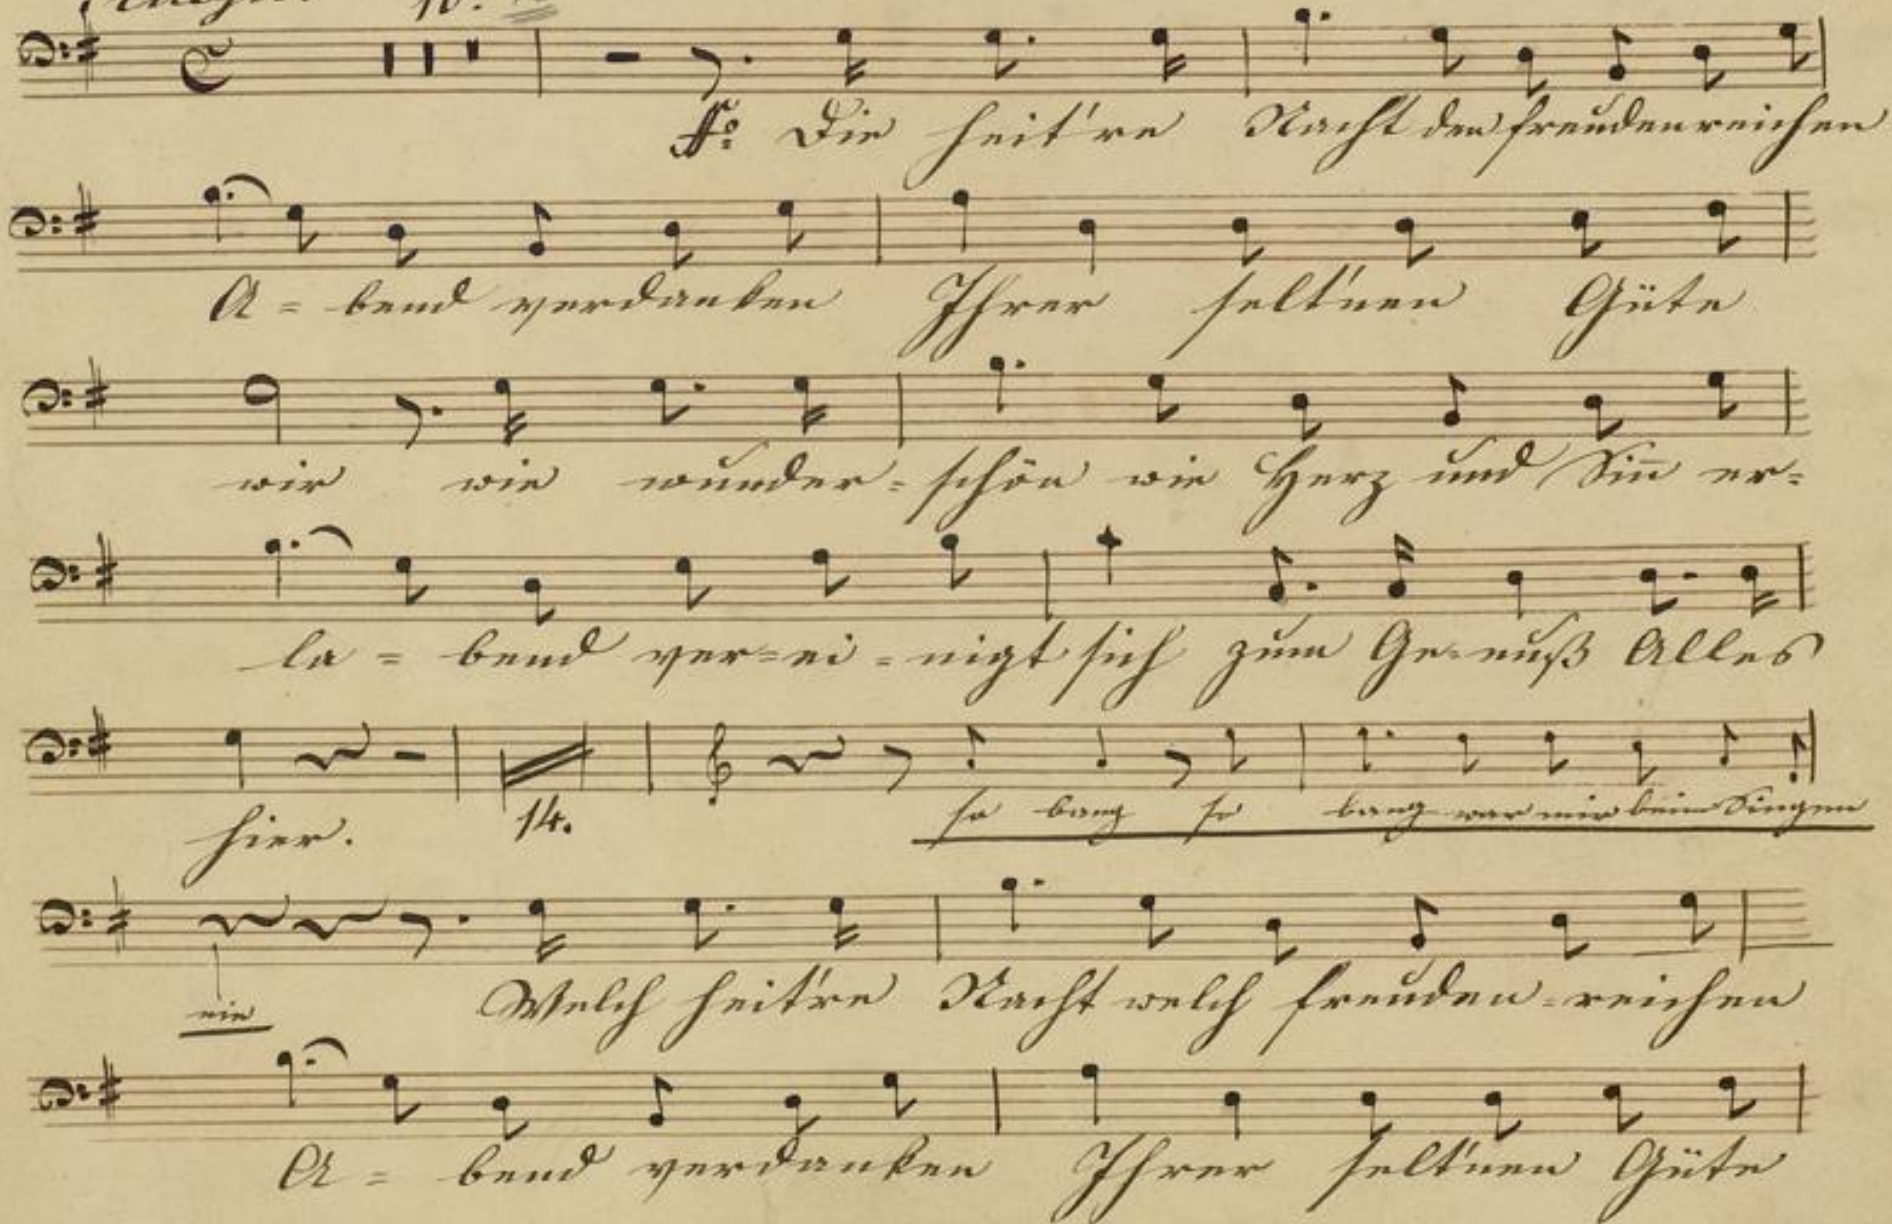 10.
ff: Die heit're Nacht den freudenreichen
A = bend verdanken Ihrer selt'nen Güte
wir wie wunder = schön wie Herz und Sin̄ er=
la = bend ver=ei=nigt sich zum Ge=nuß Alles
hier. 14. so bang so bang war mir beim Singen
nie Welch heit're Nacht welch freuden=reichen
A = bend verdanken Ihrer selt'nen Güte